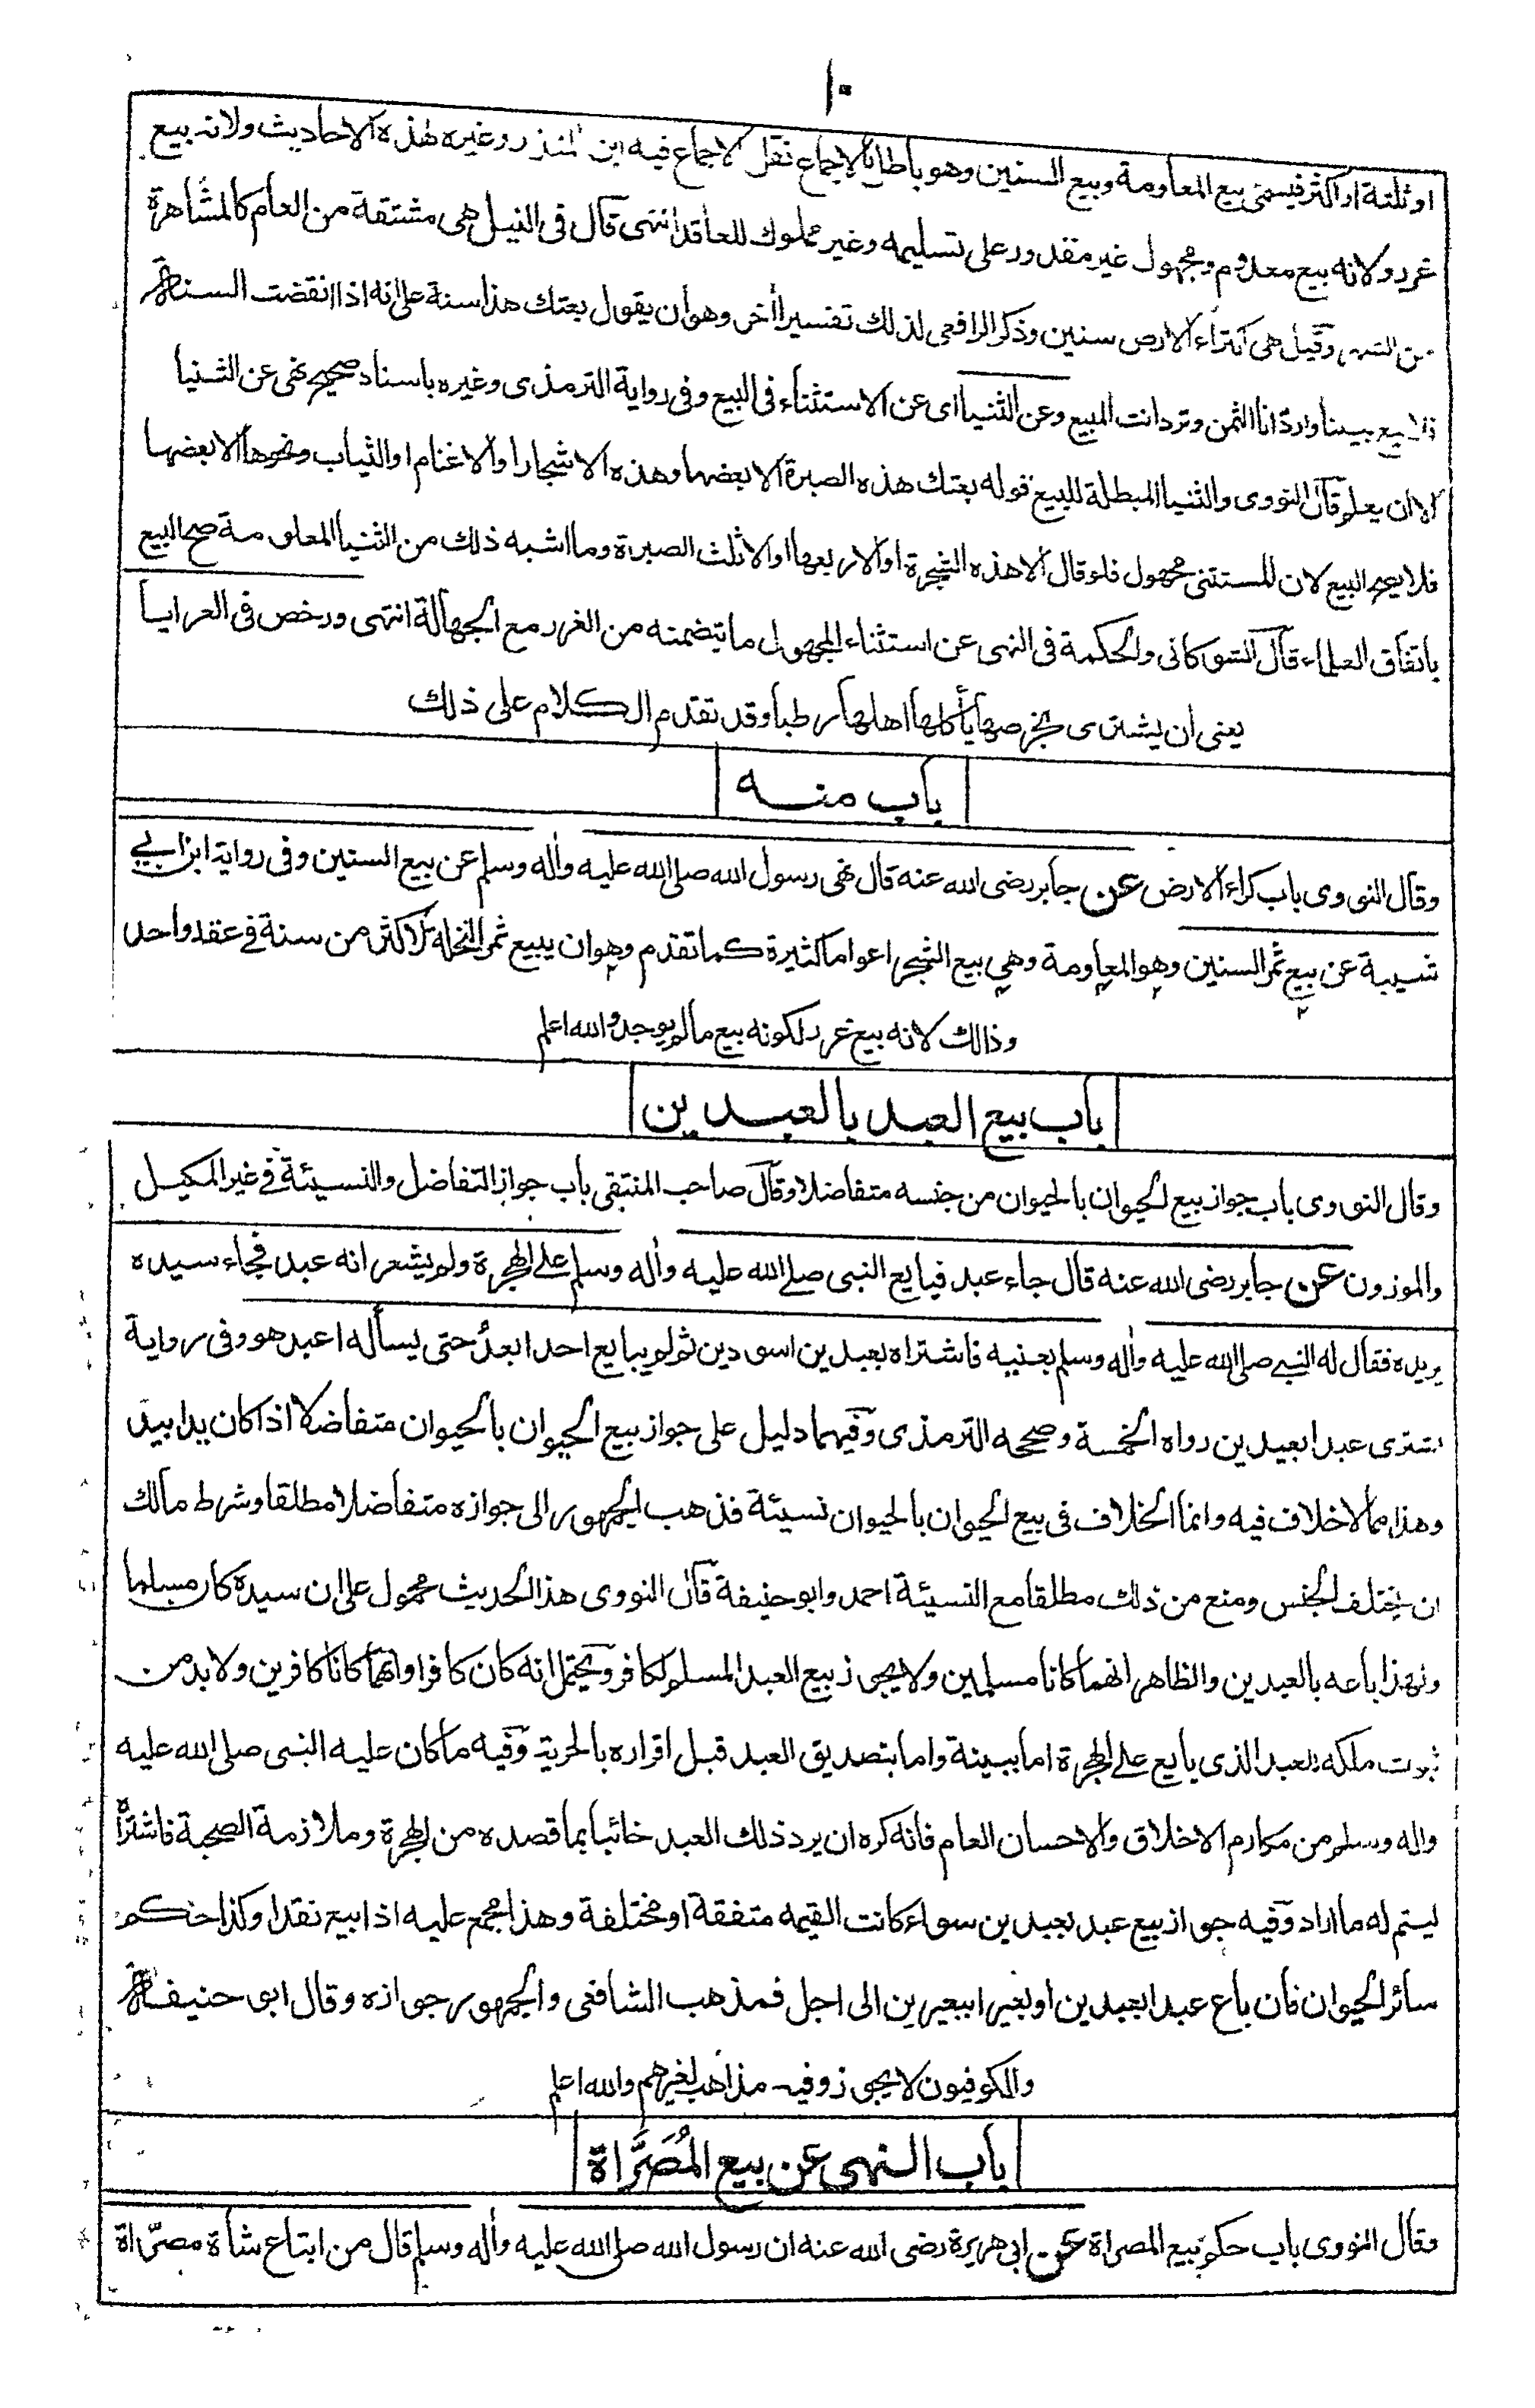 ١٠
او ثلثة او اكثر فيسمى بيع المعاومة وبيع السنين وهو باطل بالاجماع نقل الاجماع فيه ابن المنذر وغيره لهذه الاحاديث ولانه بيع
غرر ولانه بيع معدوم ومجهول غير مقدور على تسليمه وغير مملوك للعاقد انتهى قال فى النيل هى مشتقة من العام كالمشاهرة
من الشهر وقيل هى اكتراء الارض سنين وذكر الرافعى لذلك تفسيرا اٰخر وهو أن يقول بعتك هذا سنة على انه اذا انقضت السنة
فلا بيع بيننا واردّ انا الثمن وترد انت المبيع وعن الثنيا اى عن الاستثناء فى البيع وفى رواية الترمذى وغيره باسناد صحيح نهى عن الثنيا
الا ان يعلم قال النووى والثنيا المبطلة للبيع قوله بعتك هذه الصبرة الا بعضها وهذه الاشجار او الاغنام او الثياب ونحوها الا بعضها
فلا يصح البيع لان المستثنى مجهول فلو قال الا هذه الشجرة او الا ربعها او الا ثلث الصبرة وما اشبه ذلك من الثنيا المعلومة صح البيع
باتفاق العلماء قال الشوكانى والحكمة فى النهى عن استثناء المجهول ما يتضمنه من الغرر مع الجهالة انتهى ورخص فى العرايا
يعنى ان يشترى بخرصها يأكلها اهلها رطبا وقد تقدم الكلام على ذلك
باب منه
وقال النووى باب كراء الارض عن جابر رضى الله عنه قال نهى رسول الله صلى الله عليه واٰله وسلم عن بيع السنين وفى رواية ابن ابي
شيبة عن بيع ثمر السنين وهو المعاومة وهي بيع الشجر اعواما كثيرة كما تقدم وهو ان يبيع ثمر النخلة لاكثر من سنة في عقد واحد
وذالك لانه بيع غرر لكونه بيع مالم يوجد والله اعلم
باب بيع العبد بالعبدين
وقال النووى باب جواز بيع الحيوان بالحيوان من جنسه متفاضلا وقال صاحب المنتقى باب جواز التفاضل والنسيئة في غير المكيل
والموزون عن جابر رضى الله عنه قال جاء عبد فبايع النبى صلے الله عليه واٰله وسلم علے الهجرة ولم يشعر انه عبد فجاء سيده
يريده فقال له النبي صلى الله عليه واٰله وسلم بعنيه فاشتراه بعبدين اسودين ثم لم يبايع احدا بعدُ حتى يسأله اعبد هو وفى رواية
اشترى عبدا بعبدين رواه الخمسة وصححه الترمذى وفيهما دليل على جواز بيع الحيوان بالحيوان متفاضلا اذا كان يدا بيد
وهذا مما لاخلاف فيه وانما الخلاف فى بيع الحيوان بالحيوان نسيئة فذهب الجمهور الى جوازه متفاضلا مطلقا وشرط مالك
ان يختلف الجنس ومنع من ذلك مطلقا مع النسيئة احمد وابو حنيفة قال النووى هذا الحديث محمول على ان سيده كان مسلما
ولهذا باعه بالعبدين والظاهر انهما كانا مسلمين ولا يجوز بيع العبد المسلم لكافر ويحتمل انه كان كافرا وانهما كانا كافرين ولا بد من
ثبوت ملكه للعبد الذى بايع علے الهجرة اما ببينة واما بتصديق العبد قبل اقراره بالحرية وفيه ما كان عليه النبى صلى الله عليه
واله وسلم من مكارم الاخلاق والاحسان العام فانه كره ان يرد ذلك العبد خائبا بما قصده من الهجرة وملازمة الصحبة فاشتراه
ليتم له ما اراد وفيه جواز بيع عبد بعبدين سواء كانت القيمه متفقة او مختلفة وهذا مجمع عليه اذا بيع نقدا وكذا حكم
سائر الحيوان فان باع عبدا بعبدين او بعيرا ببعيرين الى اجل فمذهب الشافعى والجمهور جوازه وقال ابو حنيفة
والكوفيون لا يجوز وفيه مذاهب لغيرهم والله اعلم
باب النهى عن بيع المُصَرَّاة
وقال النووى باب حكم بيع المصراة عن ابى هريرة رضى الله عنه ان رسول الله صلى الله عليه واٰله وسلم قال من ابتاع شاة مصرّاة